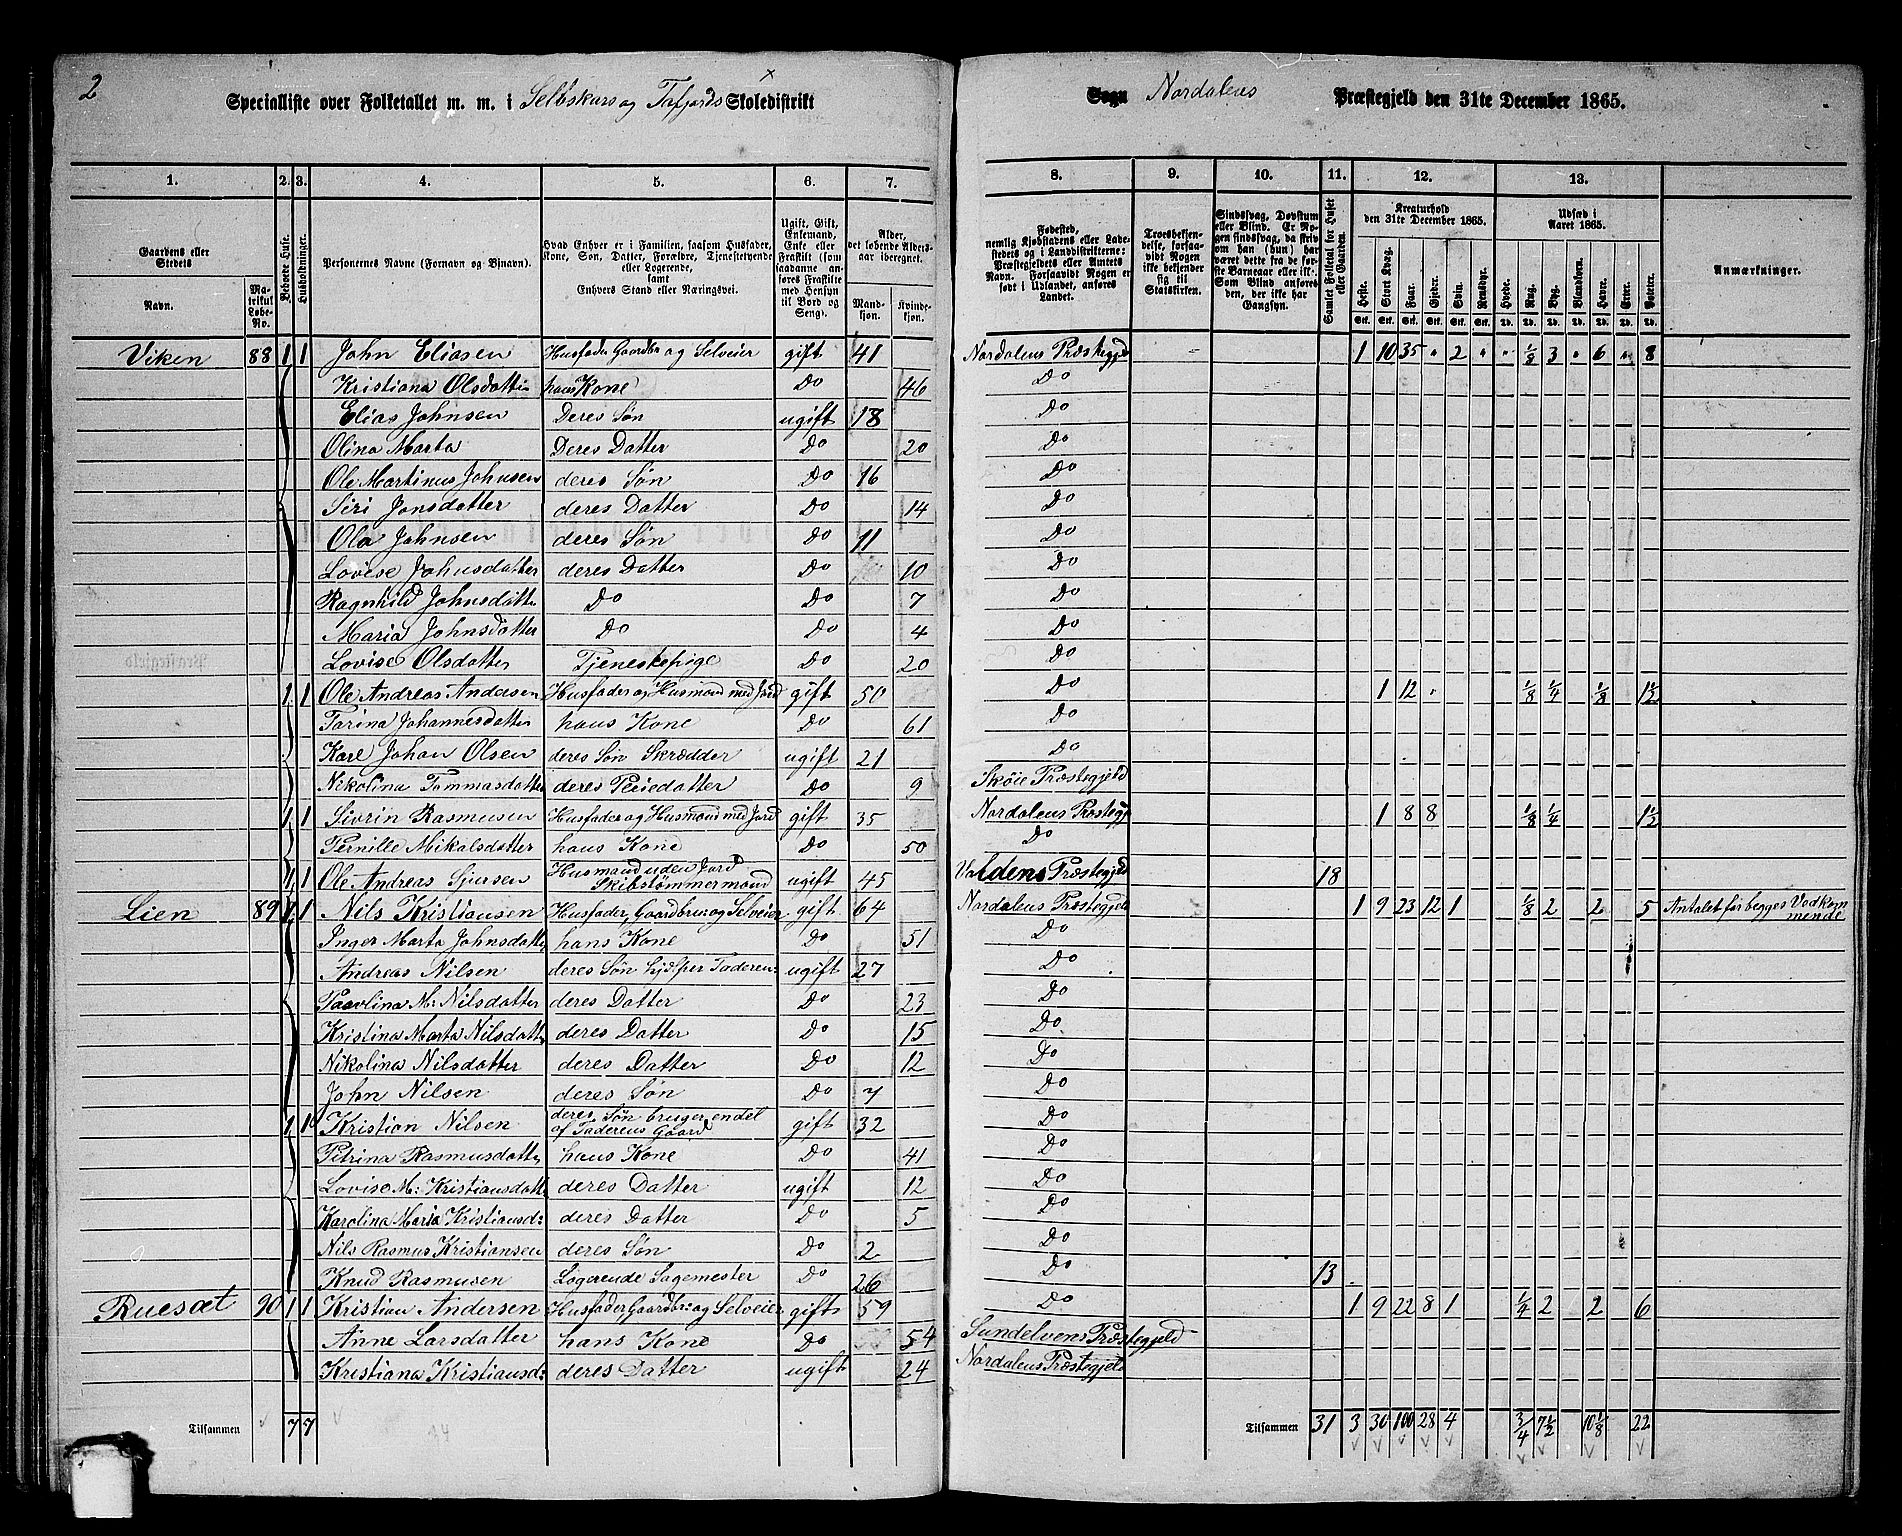 2
Specialliste over Folketallet m. m. i Selbskars og Tafjords Skoledistrikt Sogn Nordalens Præstegjeld den 31te December 1865.
1. 2. 3. 4. 5. 6. 7. 8. 9. 10. 11. 12. 13.
Gaardens eller Stedets Navn. Matrikul Løbe-No. Beboede Huse. Husholdninger. Personernes Navne (Fornavn og Binavn). Hvad Enhver er i Familien, saasom Husfader, Kone, Søn, Datter, Forældre, Tjenestetyende eller Logerende, samt Enhvers Stand eller Næringsvei. Ugift, Gift, Enkemand, Enke eller Fraskilt (som saadanne anføres Fraskilte med Hensyn til Bord og Seng). Alder, det løbende Aldersaar iberegnet. Mandkjøn. Kvindekjøn.
Fødested, nemlig Kjøbstadens eller Ladestedets og i Landdistrikterne: Præstegjeldets eller Amtets Navn. Forsaavidt Nogen er født i Udlandet, anføres Landet. Troesbekjendelse, forsaavidt Nogen ikke bekjender sig til Statskirken. Sindssvag, Døvstum eller Blind. Er Nogen sindssvag, da skrives om han (hun) har været dette fra de første Barneaar eller ikke. Som Blind anføres den, der ikke har Gangsyn. Samlet Folketal for Huset eller Gaarden. Kreaturhold den 31te December 1865. Heste. Stort Kvæg. Faar. Gjeder. Svin. Rensdyr. Udsæd i Aaret 1865. Hvede. Rug. Byg. Blandkorn. Havre. Erter. Poteter. Anmærkninger.
Viken 88 1 1 John Eliasen Husfader Gaardbr og Selveier gift 41 Nordalens Præstegjeld 1 10 35 " 2 " " 1/8 3 " 6 " 8
Kristiana Olsdatter hans Kone Do 46 Do
Elias Johnsen Deres Søn ugift 18 Do
Olina Marta Deres Datter Do 20 Do
Ole Martinus Johnsen deres Søn Do 16 Do
Siri Jonsdatter deres Datter Do 14 Do
Ola Johnsen deres Søn Do 11 Do
Lovise Johnsdatter deres Datter Do 10 Do
Ragnhild Johnsdatter Do Do 7 Do
Maria Johnsdatter Do Do 4 Do
Lovise Olsdatter Tjenestepige Do 20 Do
1 1 Ole Andreas Andersen Husfader og Husmand med Jord gift 50 Do 1 12 1/8 1/4 1/8 1 1/2
Tarina Johannesdatter hans Kone Do 61 Do
Karl Johan Olsen deres Søn Skrædder ugift 21 Do
Nikolina Tommasdatter deres Pleiedatter Do 9 Skøie Præstegjeld
1 1 Sivrin Rasmusen Husfader og Husmand med Jord gift 35 Nordalens Præstegj 1 8 8 1/8 1/4 1 1/2
Pernille Mikalsdatter hans Kone Do 50 Do
1 1 Ole Andreas Sjursen Husmand uden Jord Skibstømmermand ugift 45 Voldens Præstegjeld 18
Lien 89 1 1 Nils Kristiansen Husfader, Gaardbr og Selveier gift 64 Nordalens Præstegjeld 1 9 23 12 1 1/8 2 2 5 Antalet for begges Vedkommende
Inger Marta Johnsdatter hans Kone Do 51 Do
Andreas Nilsen deres Søn hjelper Faderen: ugift 27 Do
Paavlina M: Nilsdatter deres Datter Do 23 Do
Kristina Marta Nilsdatt deres Datter Do 15 Do
Nikolina Nilsdatter deres Datter Do 12 Do
John Nilsen deres Søn Do 7 Do
1 1 Kristian Nilsen deres Søn bruger endel af Faderens Gaard gift 32 Do
Petrina Rasmusdatter hans Kone Do 41 Do
Lovise M: Kristiansdatt deres Datter ugift 12 Do
Karolina Maria Kristiansd: deres Datter Do 5 Do
Nils Rasmus Kristiansen deres Søn Do 2 Do
Knud Rasmusen Logerende Sagemester Do 26 Do 13
Ruesæt 90 1 1 Kristian Andersen Husfader Gaardbr: og Selveier gift 59 Do 1 9 22 8 1 1/4 2 2 6
Anne Larsdatter hans Kone Do 54 Sundelvens Præstegjeld
Kristiana Kristiansd: deres Datter ugift 24 Nordalens Præstegjeld
Tilsammen 7 7 Tilsammen 31 3 30 100 28 4 3/4 7 1/2 10 1/8 22